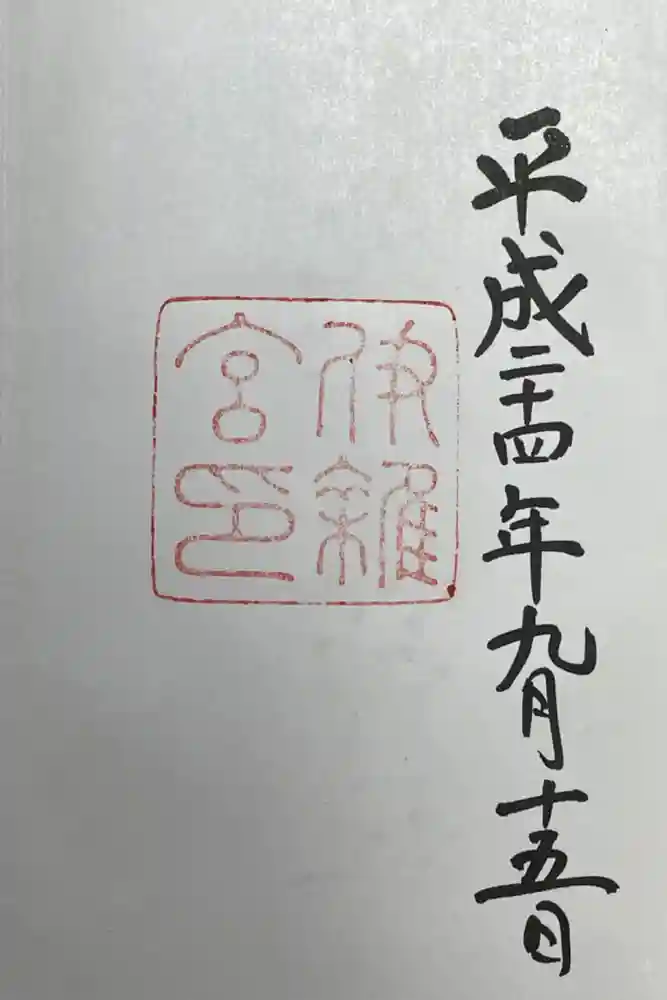 平成二十四年九月十五日
伊雜
宮印